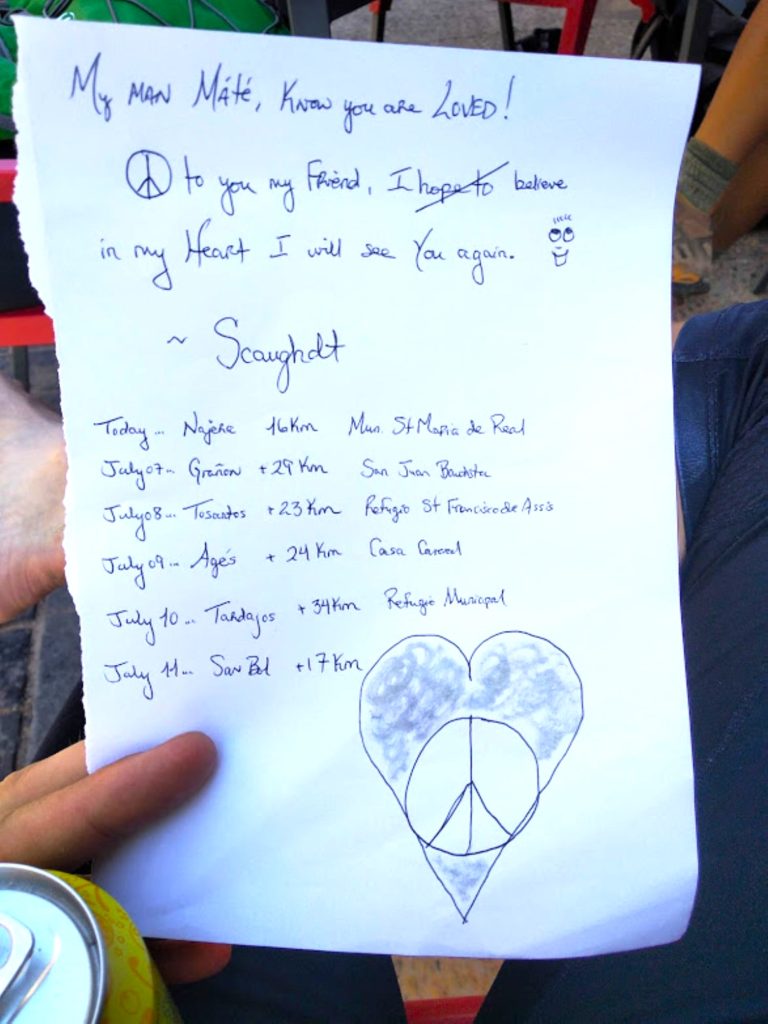 My MAN Máté, Know you are LOVED!
to you my Friend, I hope to believe
in my Heart I will see You again.
~ Scaughdt
Today... Najera 16Km Mun. St Maria de Real
July 07... Grañon +29 Km San Juan Bautista
July 08... Tosantos +23 Km Refugio St Francisco de Assis
July 09... Agés + 24 Km Casa
July 10... Tardajos + 34Km Refugio Municipal
July 11... San Bol +17 Km